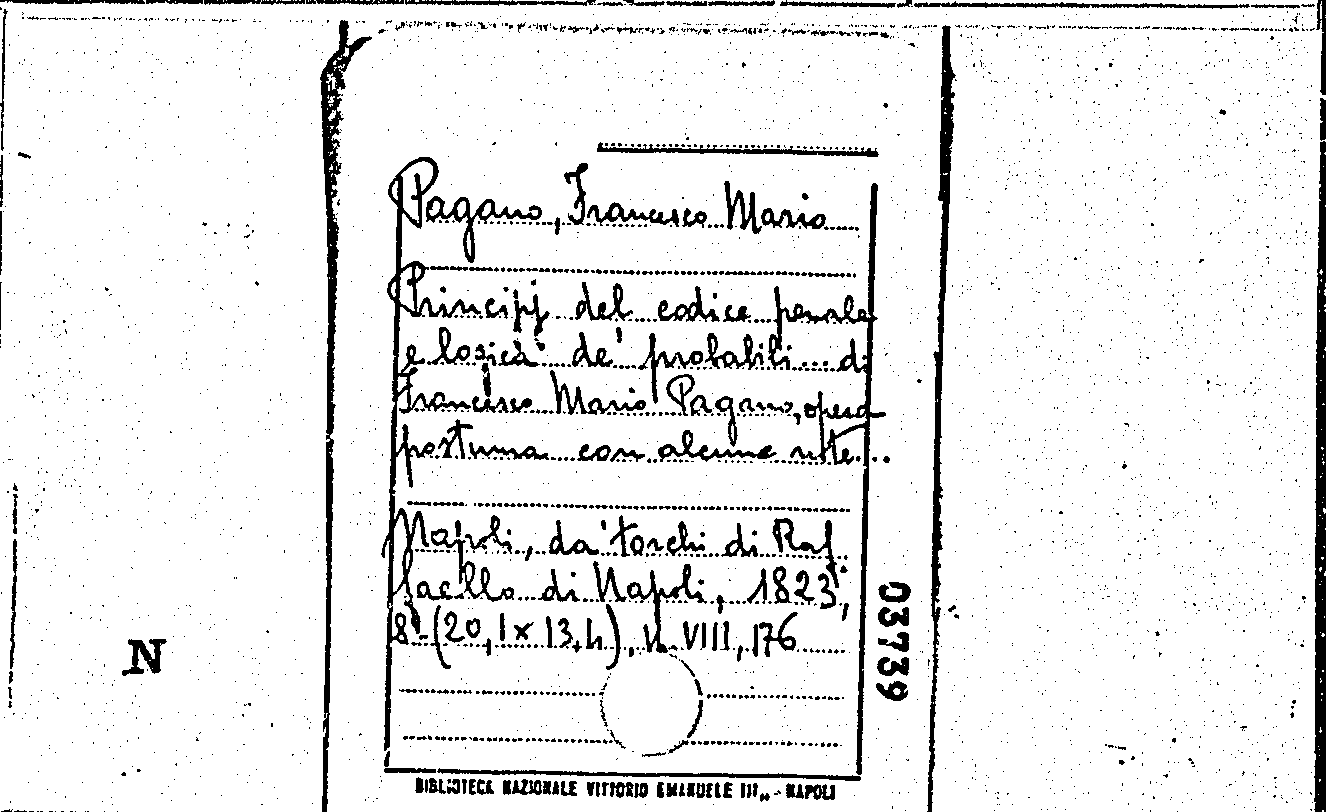 Pagano, Francesco Mario
Principj del codice penale
e logica de' probabili... di
Francesco Mario Pagano, opera
postuma con alcune note...
Napoli, da' torchi di Raf
faello di Napoli, 1823;
8º (20,1 x 13,4), VIII, 176
03739
N
BIBLIOTECA NAZIONALE VITTORIO EMANUELE III„ - NAPOLI